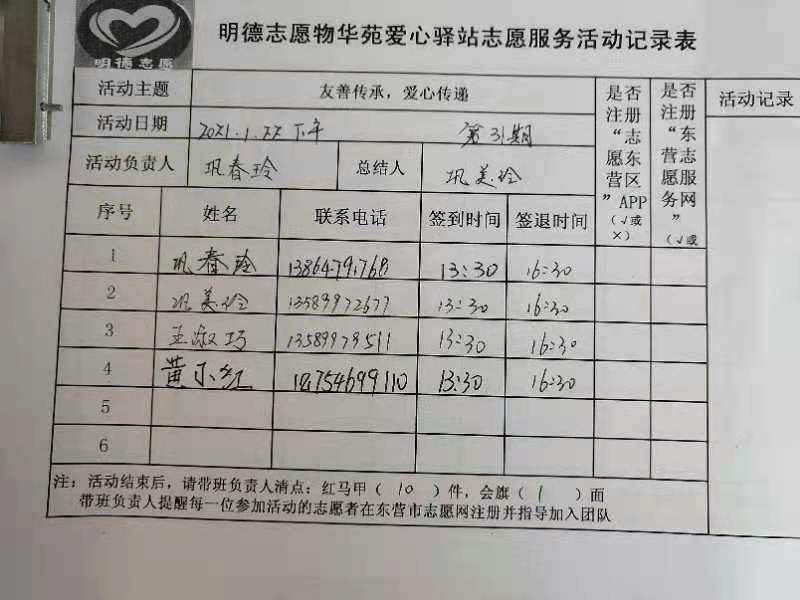 明德志愿
明德志愿物华苑爱心驿站志愿服务活动记录表
活动主题 友善传承，爱心传递 是否注册“志愿东营区”APP（√或×） 是否注册“东营志愿服务网”（√或 活动记录
活动日期 2021.1.22 下午 第31期
活动负责人 巩春玲 总结人 巩美玲
序号 姓名 联系电话 签到时间 签退时间
1 巩春玲 13:30 16:30
2 巩美玲 13589972677 13:30 16:30
3 王淑巧 13589979511 13:30 16:30
4 黄小红 18754699110 13:30 16:30
5
6
注：活动结束后，请带班负责人清点：红马甲（10）件，会旗（1）面
带班负责人提醒每一位参加活动的志愿者在东营市志愿网注册并指导加入团队